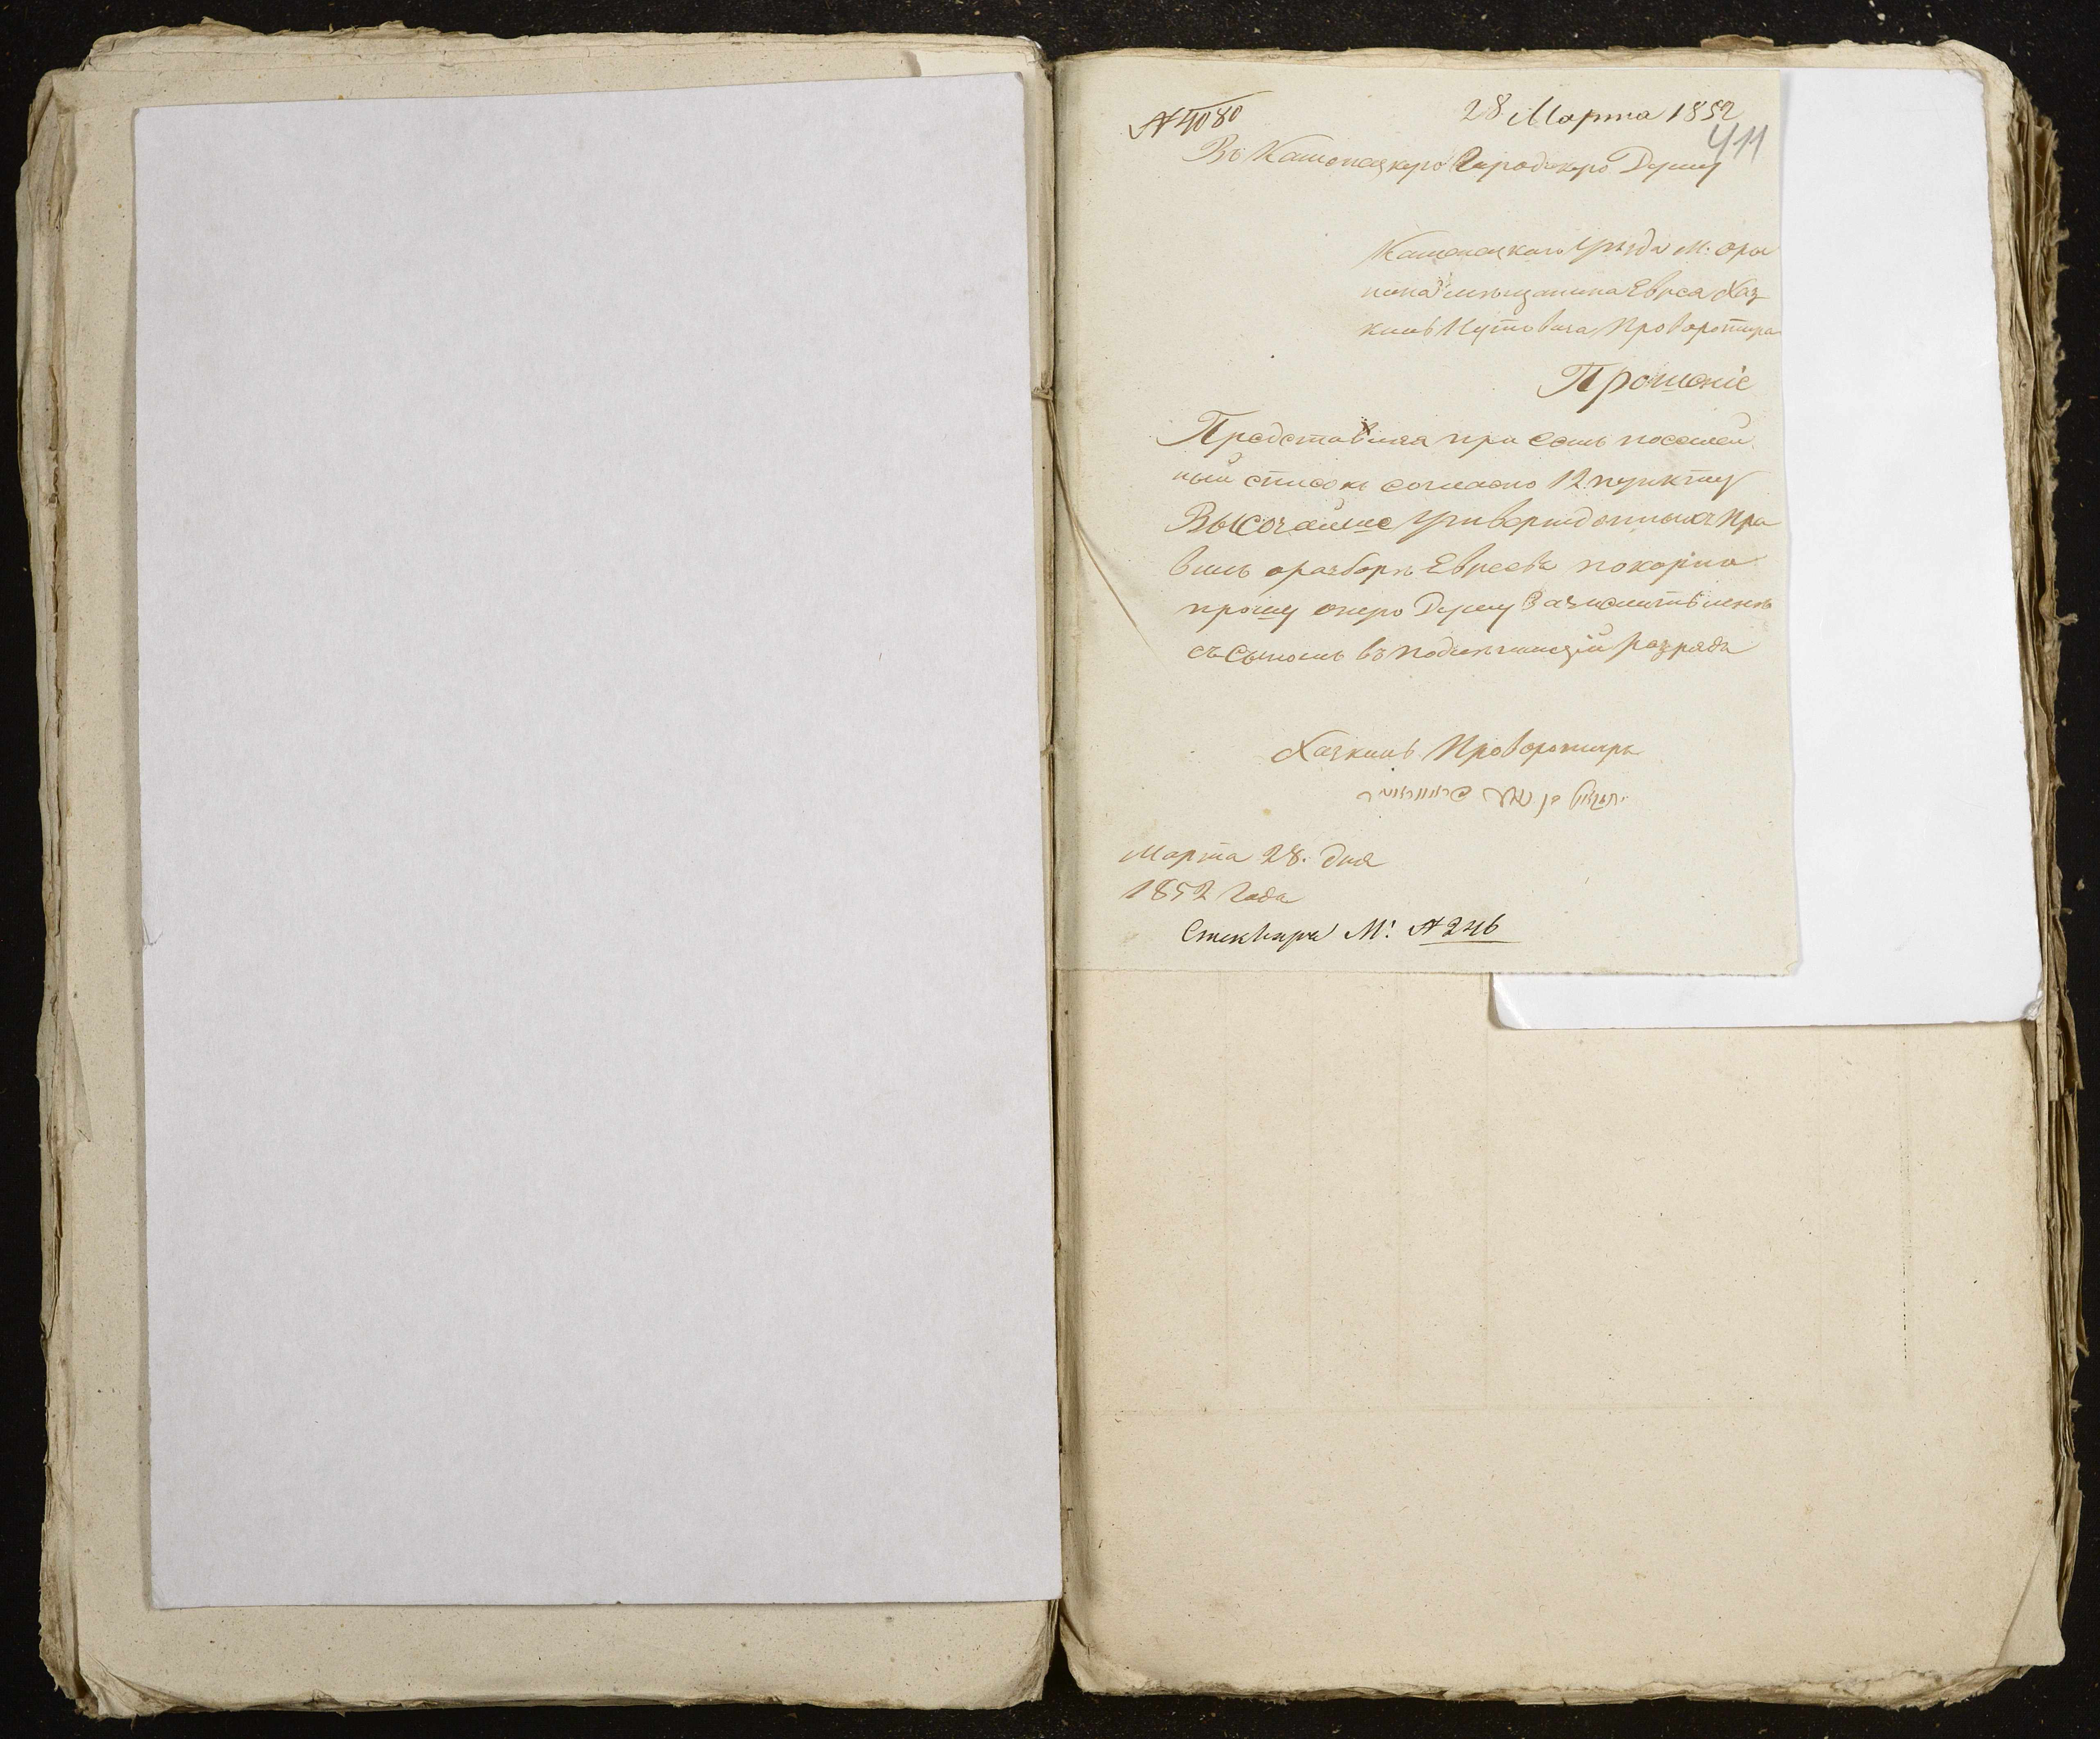 № 4080
28 Марта 1852
411
Въ Каменецкую Городскую Думу
Каменецкаго Уѣзда М: Оры
нина мѣщанина Еврея Хаз
киль Мутовича Проворотира
Прошеніе
Представляя при семъ посемей
ный списокъ согласно 12 пункту
Высочайше Утвержденныхъ Пра
вилъ о разборѣ Евреевъ покорно
прошу оную Думу Зачислить меня
съ Сыномъ въ подлежащій разрядъ
Хазкиль Проворотиръ
Марта 28. дня
1852 Года
М: № 246